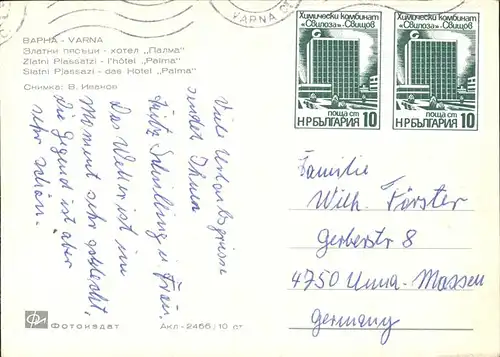 VARNA
ВАРНА - VARNA
Златни пясъци - хотел „Палма"
Zlatni Piassatzi - l'hôtel „Palma"
Slatni Pjassazi - das Hotel „Palma"
Снимка: В. Иванов
Химически комбинат
«Свилоза»-Свищов
поща ст
НР БЪЛГАРИЯ 10
Химически комбинат
«Свилоза»-Свищов
поща ст
НР БЪЛГАРИЯ 10
Viele Urlaubsgrüsse
sendet Ihnen
Fritz Schilling u. Frau.
Das Wetter ist im
Moment sehr schlecht,
Die Gegend ist aber
sehr schön.
Familie
Wilh. Förster
Gerberstr 8
4750 Unna-Massen
Germany
Фотоиздат
Акл-2466/10 ст